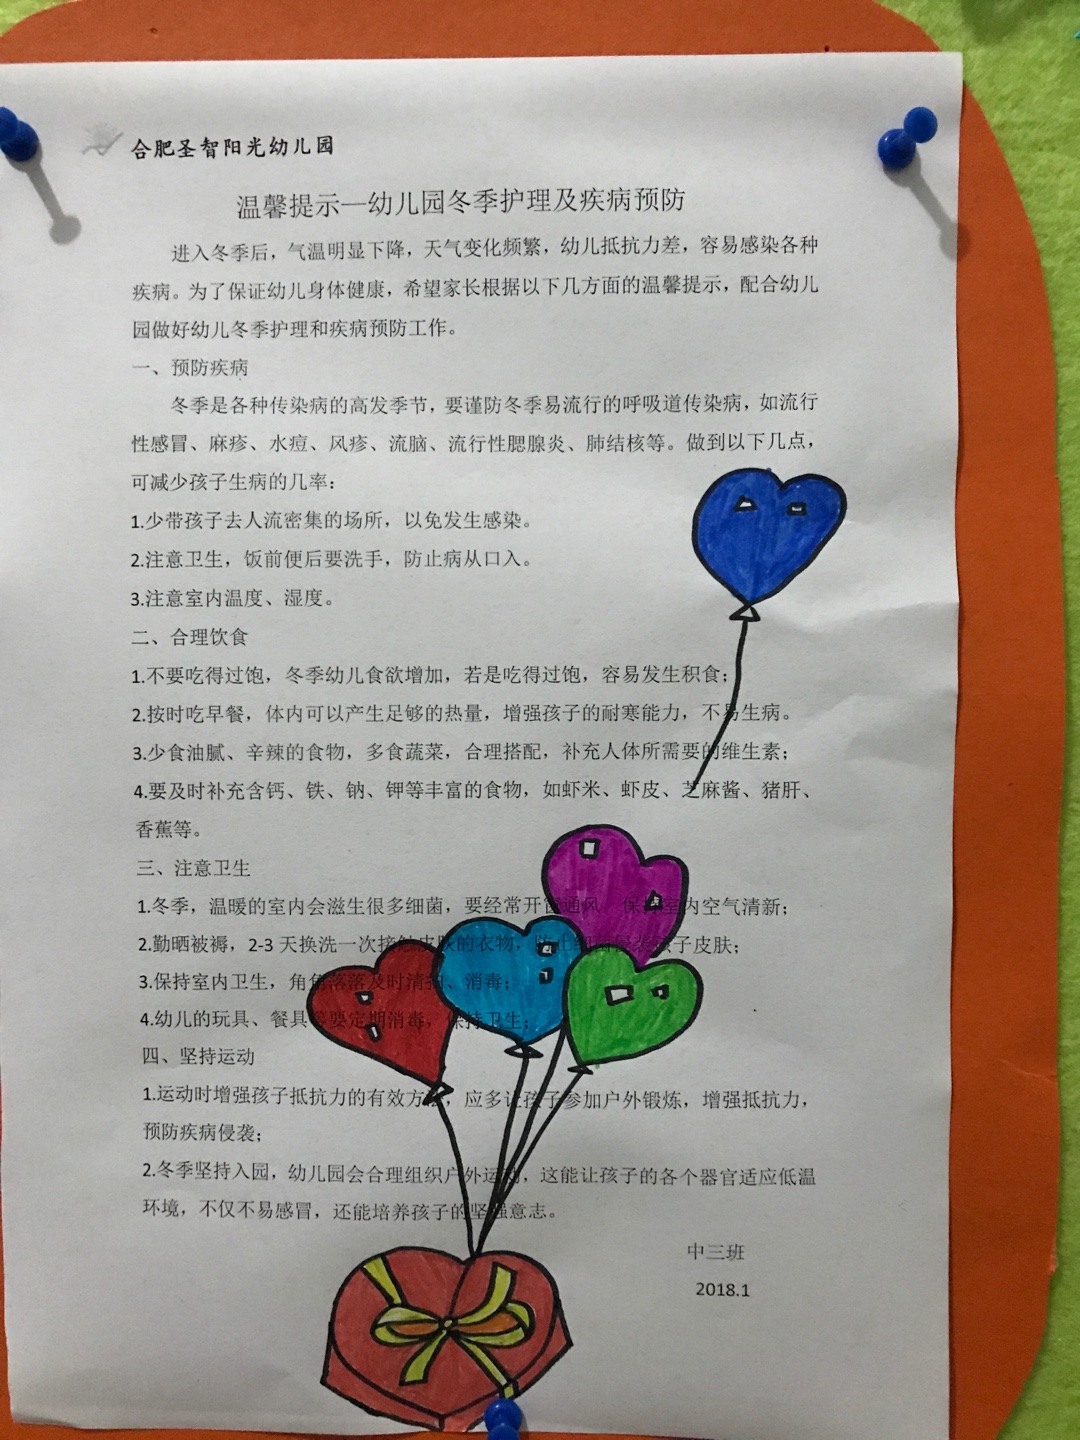 合肥圣智阳光幼儿园
温馨提示—幼儿园冬季护理及疾病预防
进入冬季后，气温明显下降，天气变化频繁，幼儿抵抗力差，容易感染各种
疾病。为了保证幼儿身体健康，希望家长根据以下几方面的温馨提示，配合幼儿
园做好幼儿冬季护理和疾病预防工作。
一、预防疾病
冬季是各种传染病的高发季节，要谨防冬季易流行的呼吸道传染病，如流行
性感冒、麻疹、水痘、风疹、流脑、流行性腮腺炎、肺结核等。做到以下几点，
可减少孩子生病的几率：
1.少带孩子去人流密集的场所，以免发生感染。
2.注意卫生，饭前便后要洗手，防止病从口入。
3.注意室内温度、湿度。
二、合理饮食
1.不要吃得过饱，冬季幼儿食欲增加，若是吃得过饱，容易发生积食；
2.按时吃早餐，体内可以产生足够的热量，增强孩子的耐寒能力，不易生病。
3.少食油腻、辛辣的食物，多食蔬菜，合理搭配，补充人体所需要的维生素；
4.要及时补充含钙、铁、钠、钾等丰富的食物，如虾米、虾皮、芝麻酱、猪肝、
香蕉等。
三、注意卫生
1.冬季，温暖的室内会滋生很多细菌，要经常开窗通风，保持室内空气清新；
2.勤晒被褥，2-3 天换洗一次接触皮肤的衣物，防止细菌侵袭孩子皮肤；
3.保持室内卫生，角角落落及时清扫、消毒；
4.幼儿的玩具、餐具等要定期消毒，保持卫生；
四、坚持运动
1.运动时增强孩子抵抗力的有效方法，应多让孩子参加户外锻炼，增强抵抗力，
预防疾病侵袭；
2.冬季坚持入园，幼儿园会合理组织户外运动，这能让孩子的各个器官适应低温
环境，不仅不易感冒，还能培养孩子的坚强意志。
中三班
2018.1